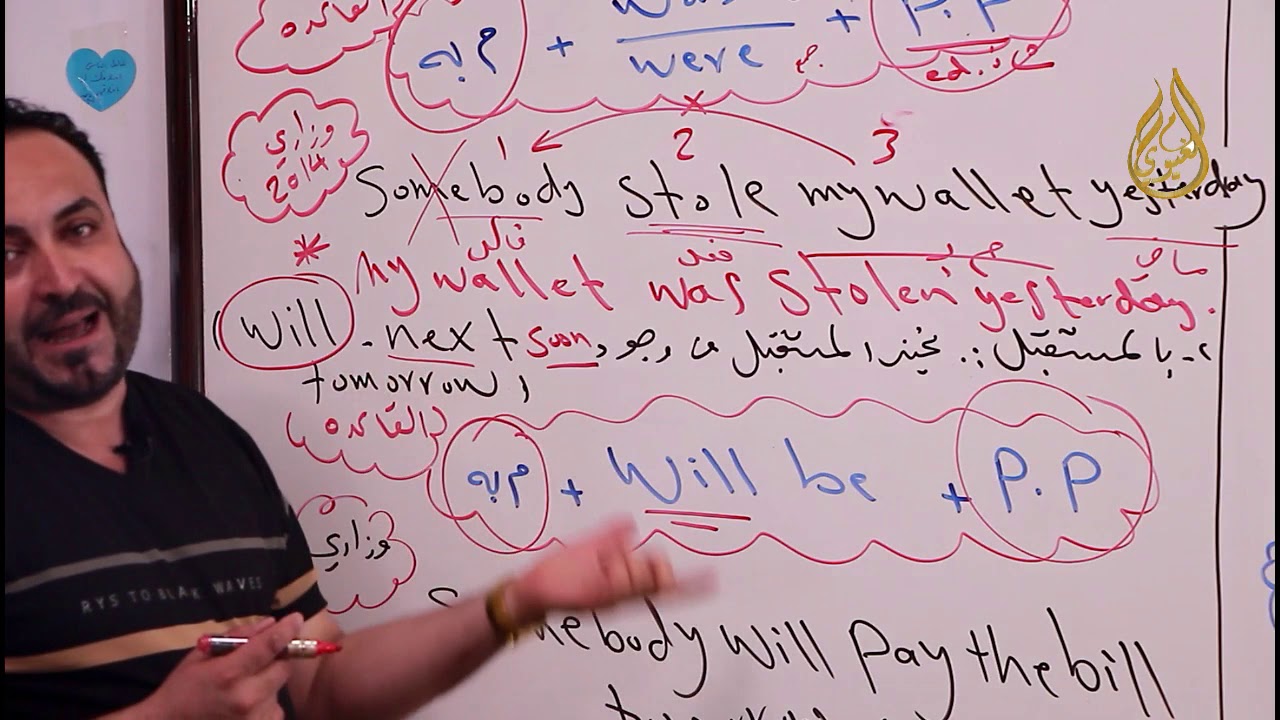 القاعده
م به + was
were + P.P
ج
ed
وزاري
2014
1 2 3
Somebody stole my wallet yesterday
فاعل فعل م به ماضي
* My wallet was stolen yesterday.
٢- بالمستقبل :. نميز المستقبل من وجود soon, next - will
tomorrow,
(القاعده)
م به + will be + P.P
وزاري
Somebody will pay the bill
RYS TO BLAK WAVES